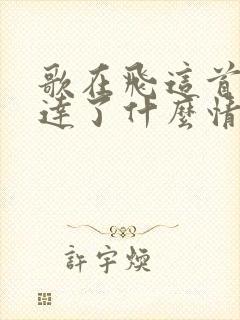 歌在飛這首
達了什麼情
許宇煥